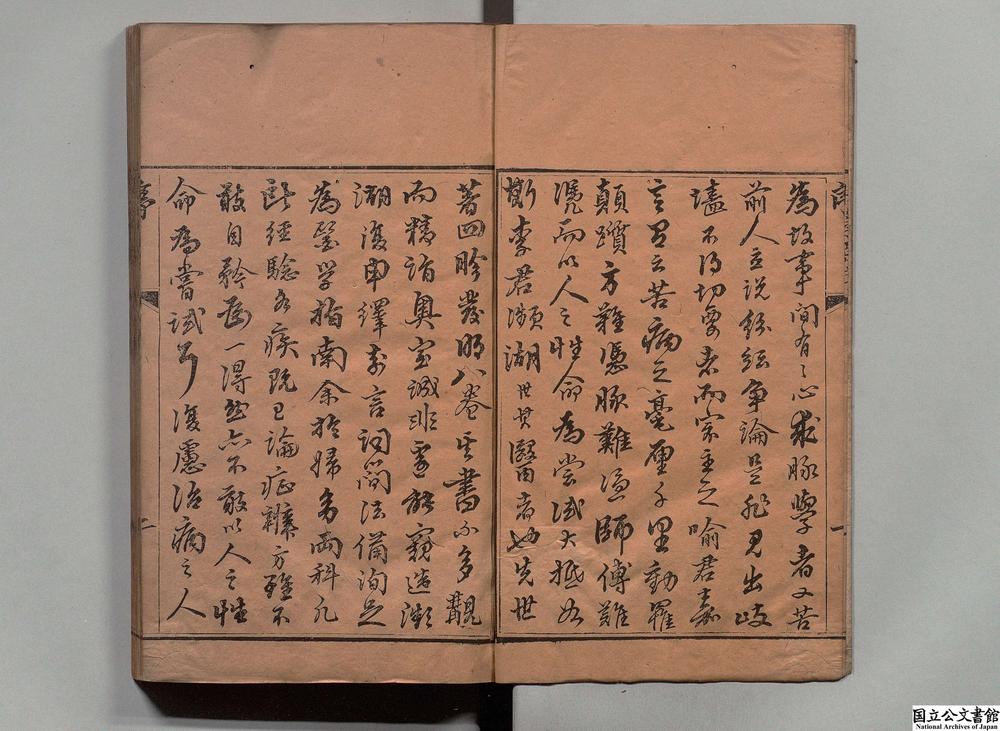 為故事間有々心求脉學者又苦
前人立説紛紜争論是非見出岐
不得切要者而宗主之喻君嘉
言曰云苦病之毫厘千里動罹
顛躓方難憑脉難憑師傅難
憑而以人之性命為嘗試大抵如
斯李君瀕湖世其醫者也先世
著四眕發明八卷其書不多覯
而精詣奥室誠非裏能窺造瀕
湖復申繹前言詞簡法備洵足
為醫学指南余於婦多兩科凡
經驗各疾既已論症辨方雖不
敢自矜為一得然亦不敢以人之性
命為嘗試耳復慮治病之人
序
一
二
国立公文書館
National Archives of Japan